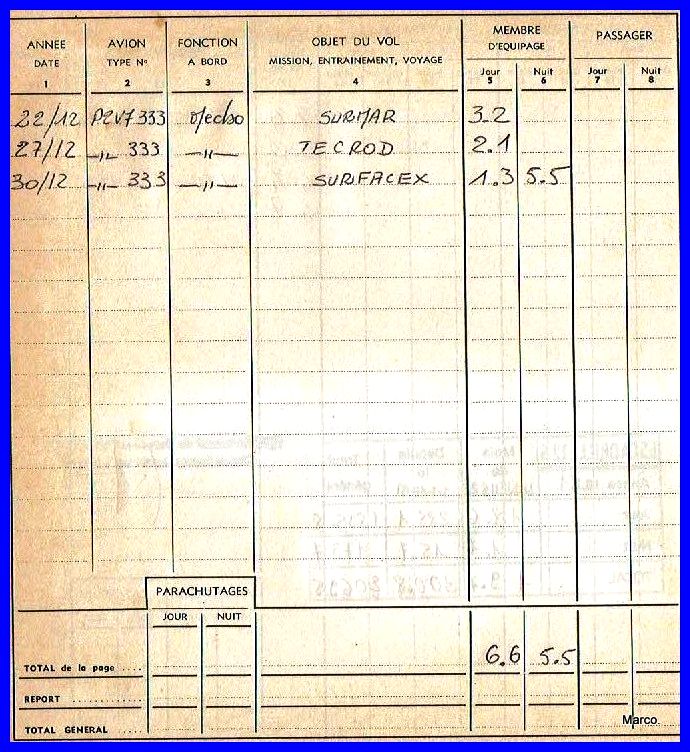 ANNEE AVION FONCTION OBJET DU VOL MEMBRE D'EQUIPAGE PASSAGER
DATE TYPE N° A BORD MISSION, ENTRAINEMENT, VOYAGE Jour Nuit Jour Nuit
1 2 3 4 5 6 7 8
22/12 P2V7 333 SURMAR 3.2
27/12 -"- 333 -"- TECROD 2.1
30/12 -"- 333 -"- SURFACEX 1.3 5.5
PARACHUTAGES
JOUR NUIT
TOTAL de la page .... 6.6 5.5
REPORT ............
TOTAL GENERAL ....
Marco.